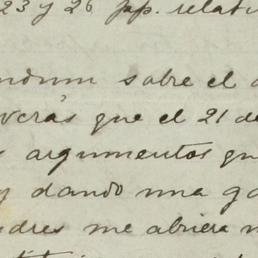 23 y 26 pp. relati
ndum sobre el a
verás que el 21 de
argumentos qu
y dando una ga
ndres me abriera